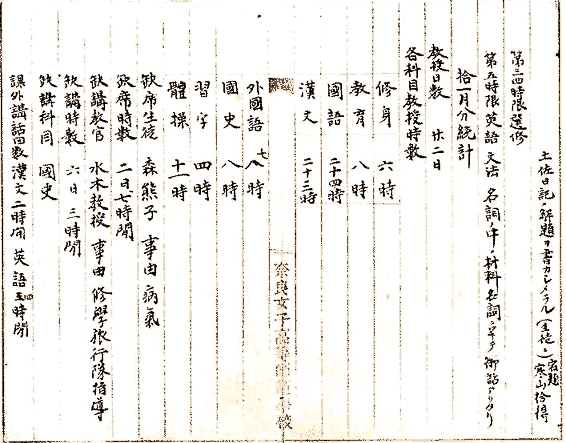 土佐日記ノ解題ヲ書カシメラル(生徒ニ) 宿題 寒山拾得
第三四時限選修
第五時限英語 文法 名詞ノ中ノ材料名詞ニツキテ御話アリタリ
拾一月分統計
教授日数 廿二日
各科目教授時数
修身 六時
教育 八時
國語 二十四時
漢文 二十二時
外國語 七八時
國史 八時
習字 四時
體操 十一時
缺席生徒 森熊子 事由 病氣
缺席時数 二日七時間
缺講教官 水木教授 事由 修學旅行隊指導
缺講時数 六日三時間
缺講科目 國史
課外講話回数 漢文二時間 英語四時間
奈良女子高等師範學校